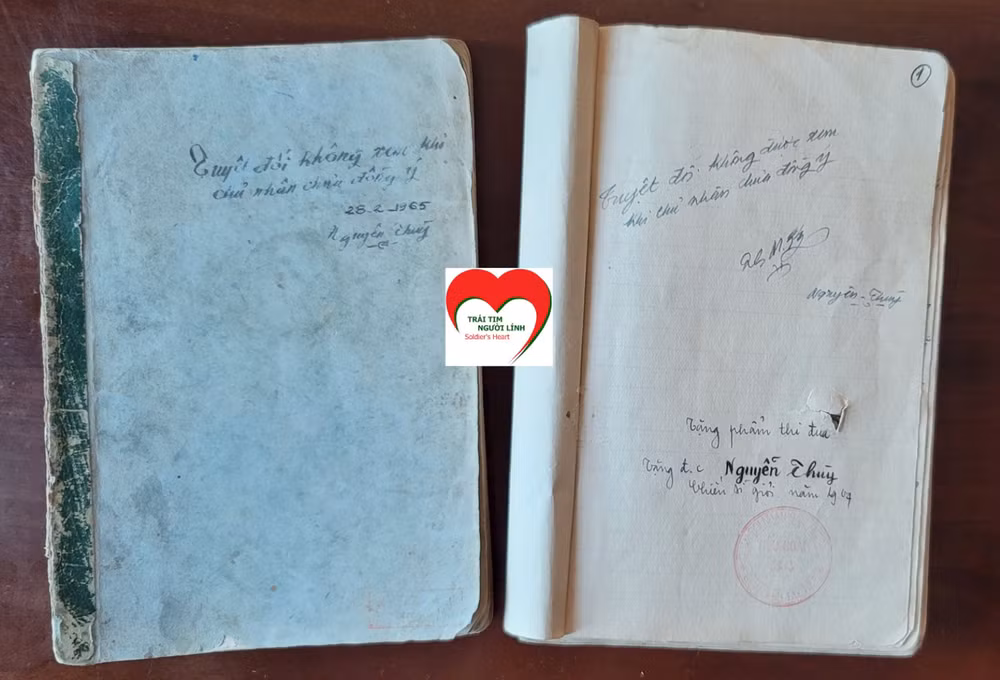 Tuyệt đối không xem khi
chủ nhân chưa đồng ý
28-2-1965
Nguyễn Thuỳ
TRÁI TIM
NGƯỜI LÍNH
Soldier's Heart
1
Tuyệt đối không được xem
khi chủ nhân chưa đồng ý
Nguyễn-Thuỳ
Tặng phẩm thi đua
Tặng đ.c Nguyễn Thùy
Chiến sĩ giỏi năm